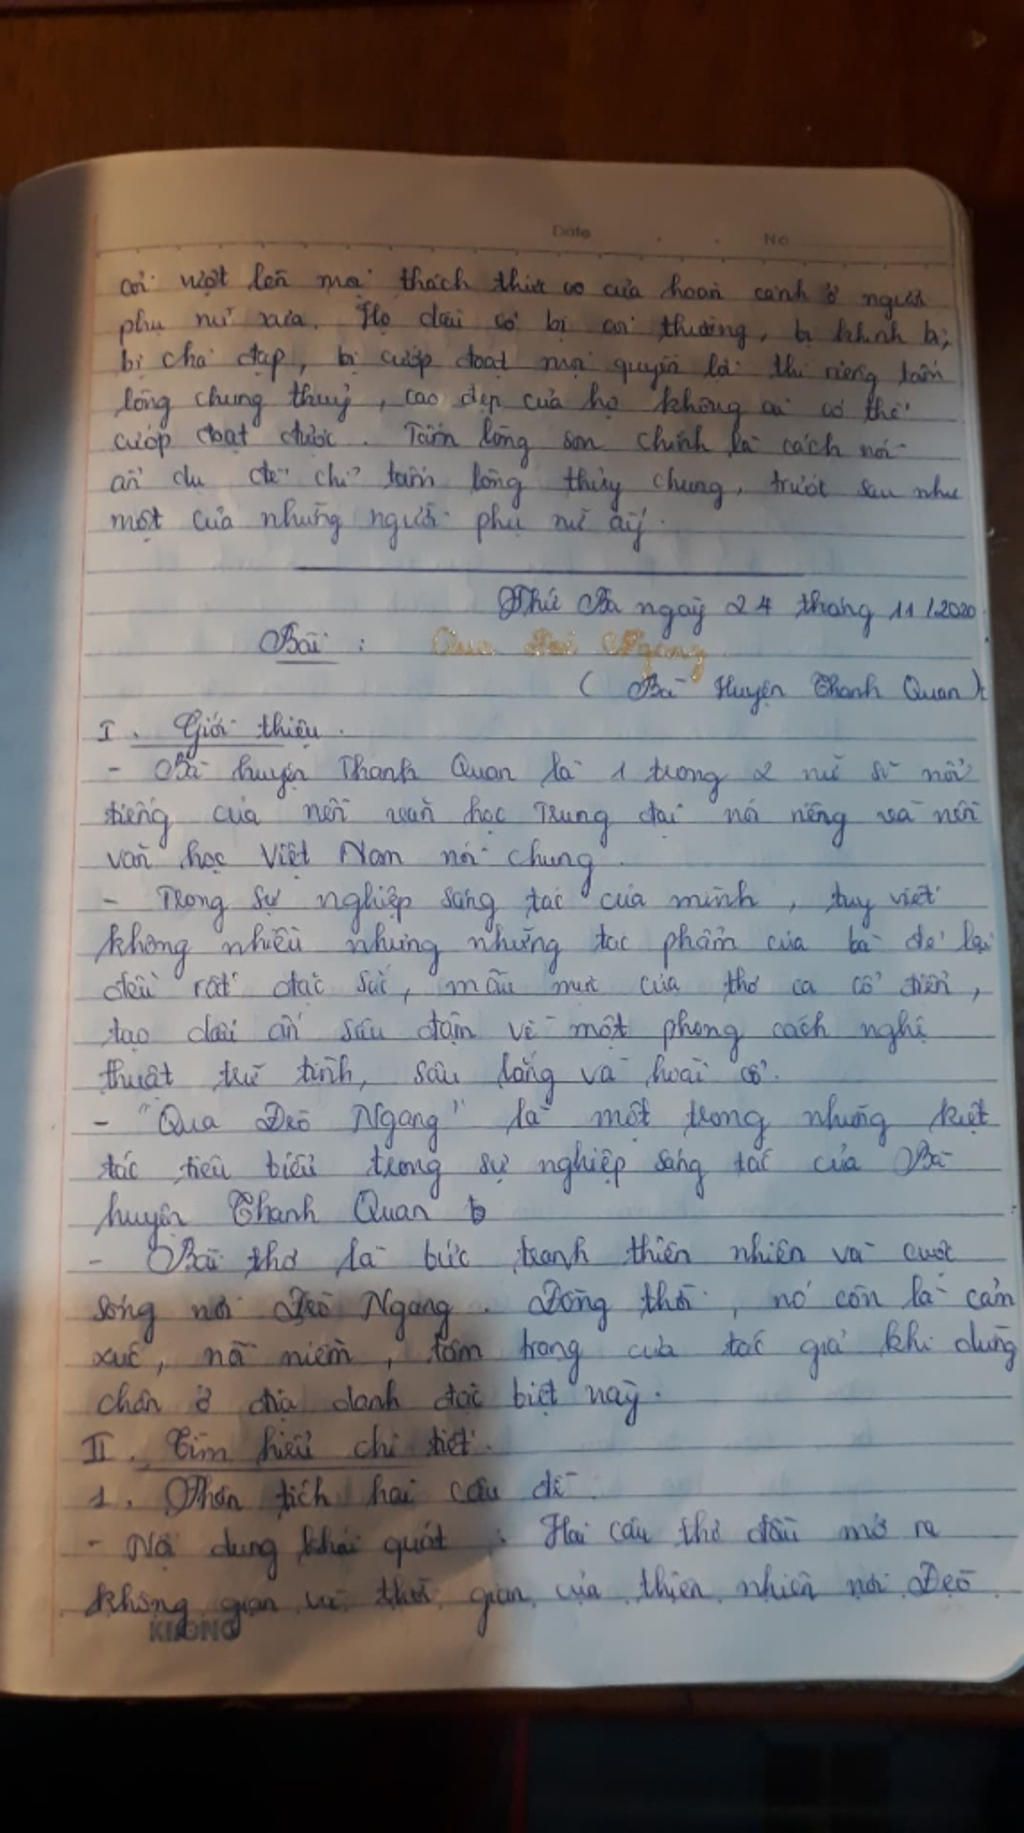 Date No
cỏi vượt lên mọi thách thức của hoàn cảnh ở người
phụ nữ xưa. Họ dẫu có bị coi thường, bị khinh bỉ,
bị chà đạp, bị cướp đoạt mọi quyền lợi thì riêng tấm
lòng chung thuỷ, cao đẹp của họ không ai có thể
cướp đoạt được. Tấm lòng son chính là cách nói
ẩn dụ để chỉ tấm lòng thủy chung, trước sau như
một của những người phụ nữ ấy.
Thứ Ba ngày 24 tháng 11/2020
Bài : Qua Đèo Ngang
( Bà Huyện Thanh Quan )
I. Giới thiệu.
- Bà huyện Thanh Quan là 1 trong 2 nữ sĩ nổi
tiếng của nền văn học Trung đại nói riêng và nền
văn học Việt Nam nói chung.
- Trong sự nghiệp sáng tác của mình, tuy viết
không nhiều nhưng những tác phẩm của bà để lại
đều rất đặc sắc, mẫu mực của thơ ca cổ điển,
tạo dấu ấn sâu đậm về một phong cách nghệ
thuật trữ tình, sâu lắng và hoài cổ.
- "Qua Đèo Ngang" là một trong những kiệt
tác tiêu biểu trong sự nghiệp sáng tác của Bà
huyện Thanh Quan
- Bài thơ là bức tranh thiên nhiên và cuộc
sống nơi Đèo Ngang. Đồng thời, nó còn là cảm
xúc, nỗi niềm, tâm trạng của tác giả khi dừng
chân ở địa danh đặc biệt này.
II. Tìm hiểu chi tiết.
1. Phân tích hai câu đề
- Nội dung khái quát : Hai câu thơ đầu mở ra
không gian và thời gian của thiên nhiên nơi Đèo